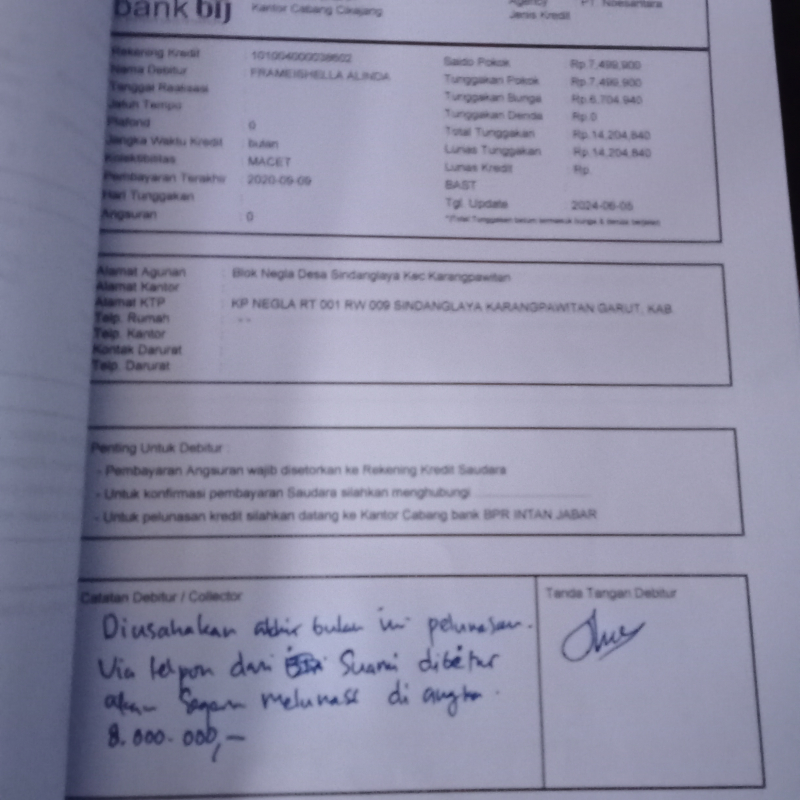 bank bij
Kantor Cabang Cikajang
Agency PT. Noesantara
Jenis Kredit
Rekening Kredit : 101004000038602
Nama Debitur : FRAMEISHELLA ALINDA
Tanggal Realisasi
Jatuh Tempo
Plafond : 0
Jangka Waktu Kredit : bulan
Kolektibilitas : MACET
Pembayaran Terakhir : 2020-09-09
Hari Tunggakan
Angsuran : 0
Saldo Pokok : Rp.7,499,900
Tunggakan Pokok : Rp.7,499,900
Tunggakan Bunga : Rp.6,704,940
Tunggakan Denda : Rp.0
Total Tunggakan : Rp.14,204,840
Lunas Tunggakan : Rp.14,204,840
Lunas Kredit : Rp.
BAST
Tgl. Update : 2024-06-05
*)Total Tunggakan belum termasuk bunga & denda berjalan
Alamat Agunan : Blok Negla Desa Sindanglaya Kec Karangpawitan
Alamat Kantor
Alamat KTP : KP NEGLA RT 001 RW 009 SINDANGLAYA KARANGPAWITAN GARUT, KAB.
Telp. Rumah : - -
Telp. Kantor
Kontak Darurat
Telp. Darurat
Penting Untuk Debitur :
- Pembayaran Angsuran wajib disetorkan ke Rekening Kredit Saudara
- Untuk konfirmasi pembayaran Saudara silahkan menghubungi
- Untuk pelunasan kredit silahkan datang ke Kantor Cabang bank BPR INTAN JABAR
Catatan Debitur / Collector
Diusahakan akhir bulan ini pelunasan.
Via telpon dari Suami dibetur
akan Segera melunasi di angka
8.000.000,-
Tanda Tangan Debitur